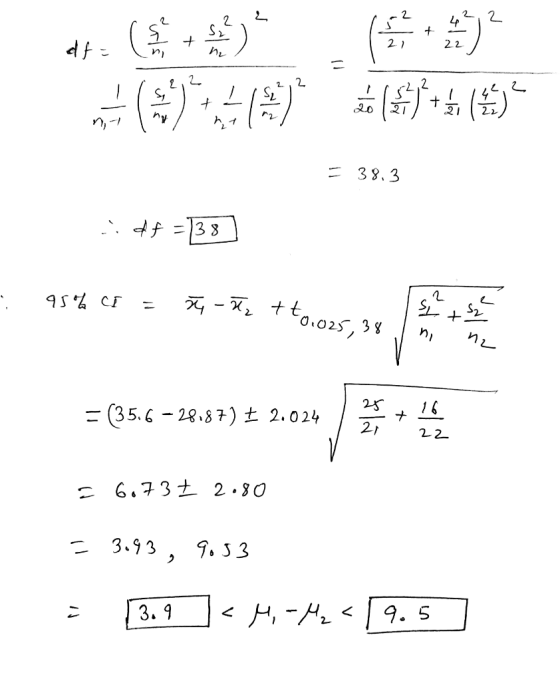 df = (s₁²/n₁ + s₂²/n₂)² / (1/(n₁-1) (s₁²/n₁)² + 1/(n₂-1) (s₂²/n₂)²) = (5²/21 + 4²/22)² / (1/20 (5²/21)² + 1/21 (4²/22)²)
= 38.3
∴ df = 38
: 95% CI = x̄₁ - x̄₂ + t₀.₀₂₅, ₃₈ √(s₁²/n₁ + s₂²/n₂)
= (35.6 - 28.87) ± 2.024 √(25/21 + 16/22)
= 6.73 ± 2.80
= 3.93, 9.53
= 3.9 < μ₁ - μ₂ < 9.5